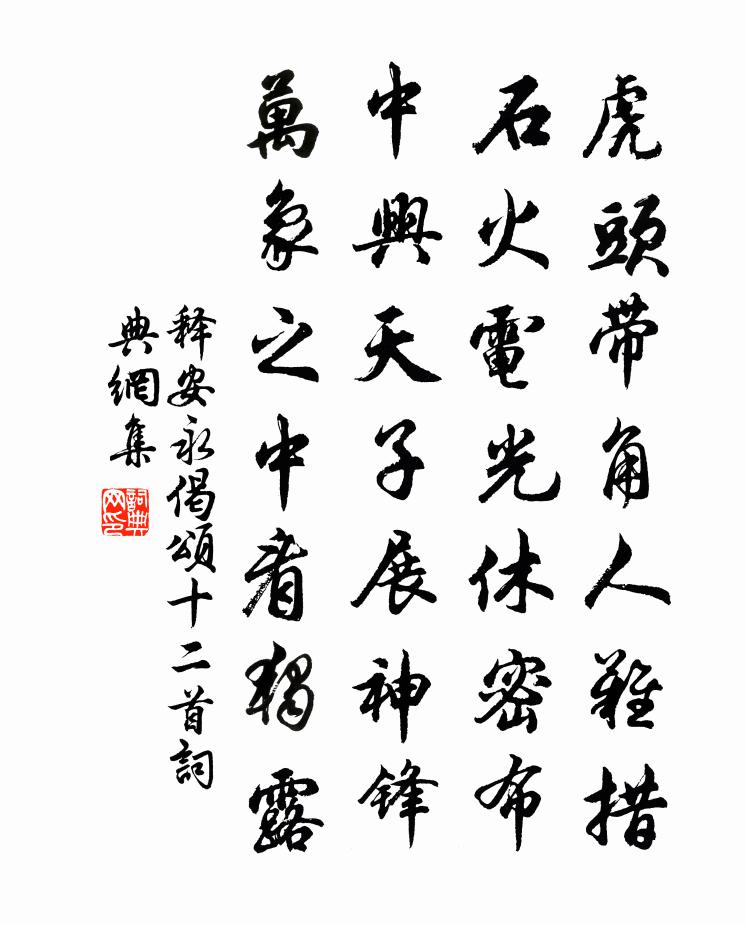 虎頭帶角人難措
石火電光休密布
中興天子展神鋒
萬象之中看獨露
释安永偈頌十二首詞
典網集
詞典
网印